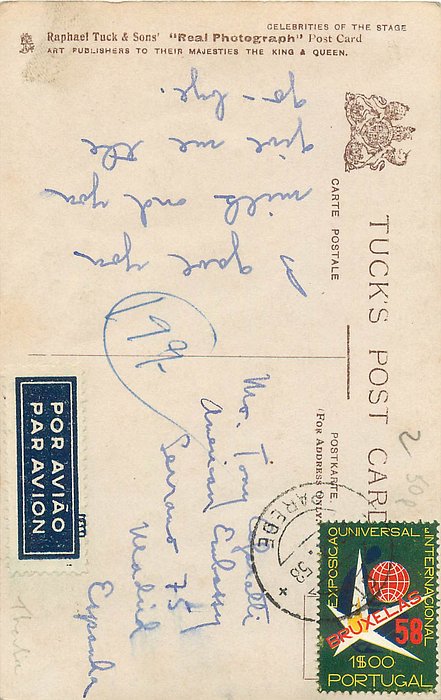 CELEBRITIES OF THE STAGE
Raphael Tuck & Sons' "Real Photograph" Post Card
ART PUBLISHERS TO THEIR MAJESTIES THE KING & QUEEN.
CARTE POSTALE
TUCK'S POST CARD
POSTKARTE.
(For Address Only
I gave you
milk and you
give me the
go-bye.
Mr. Tony
American Embassy
Serrano 75
Madrid
España
POR AVIÃO
PAR AVION
58
EXPOSIÇÃO UNIVERSAL E INTERNACIONAL
BRUXELAS
58
1$00
PORTUGAL